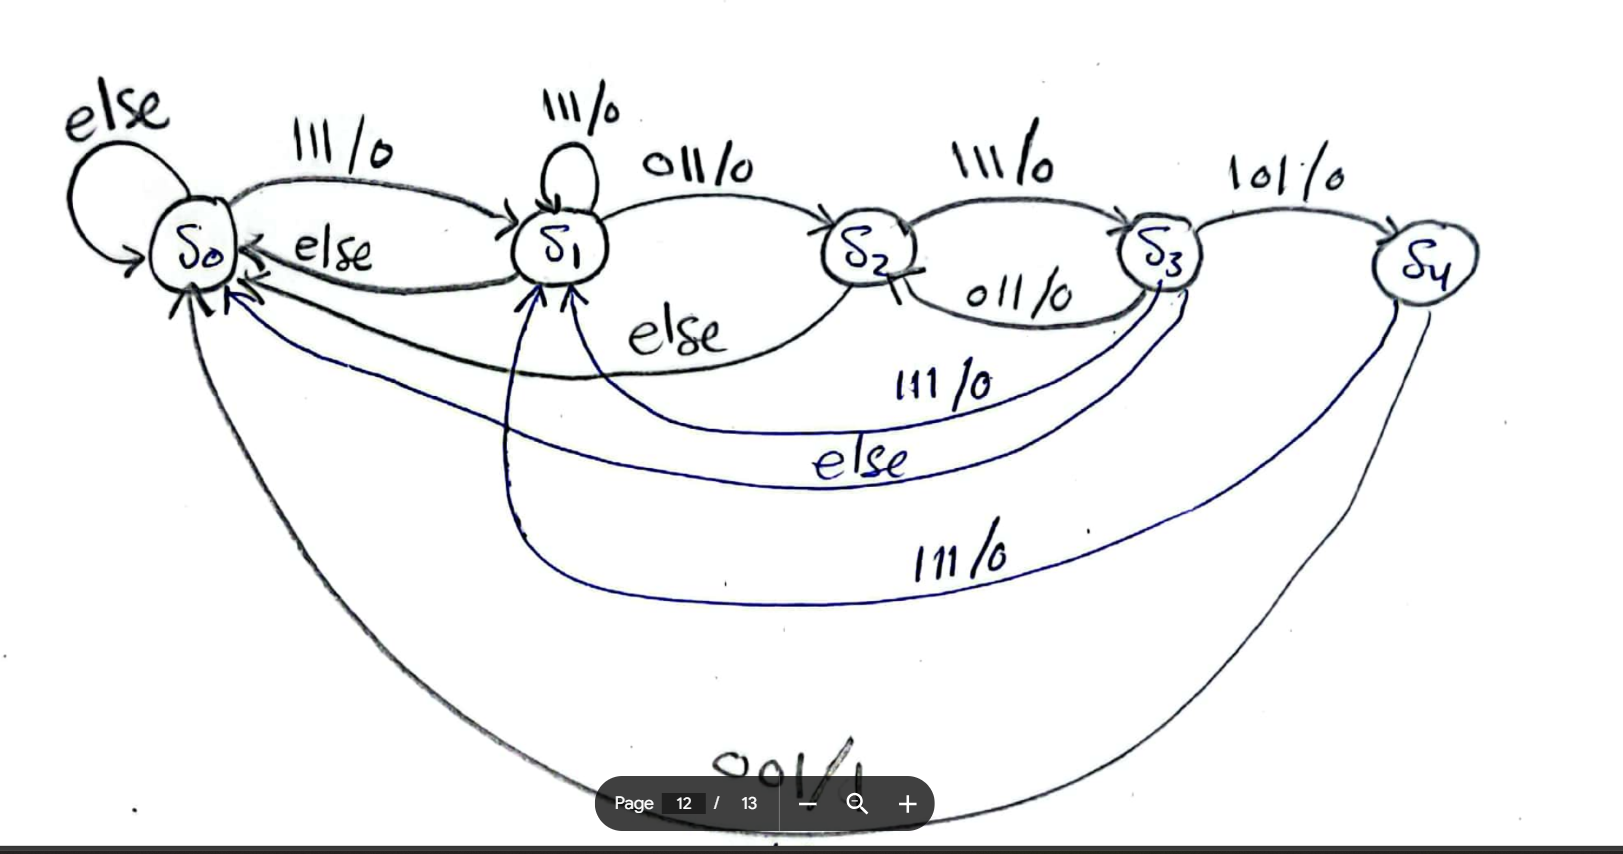 else
111/0
111/0
011/0
111/0
101/0
S0
else
S1
S2
S3
S4
011/0
else
111/0
else
111/0
001/1
Page 12 / 13